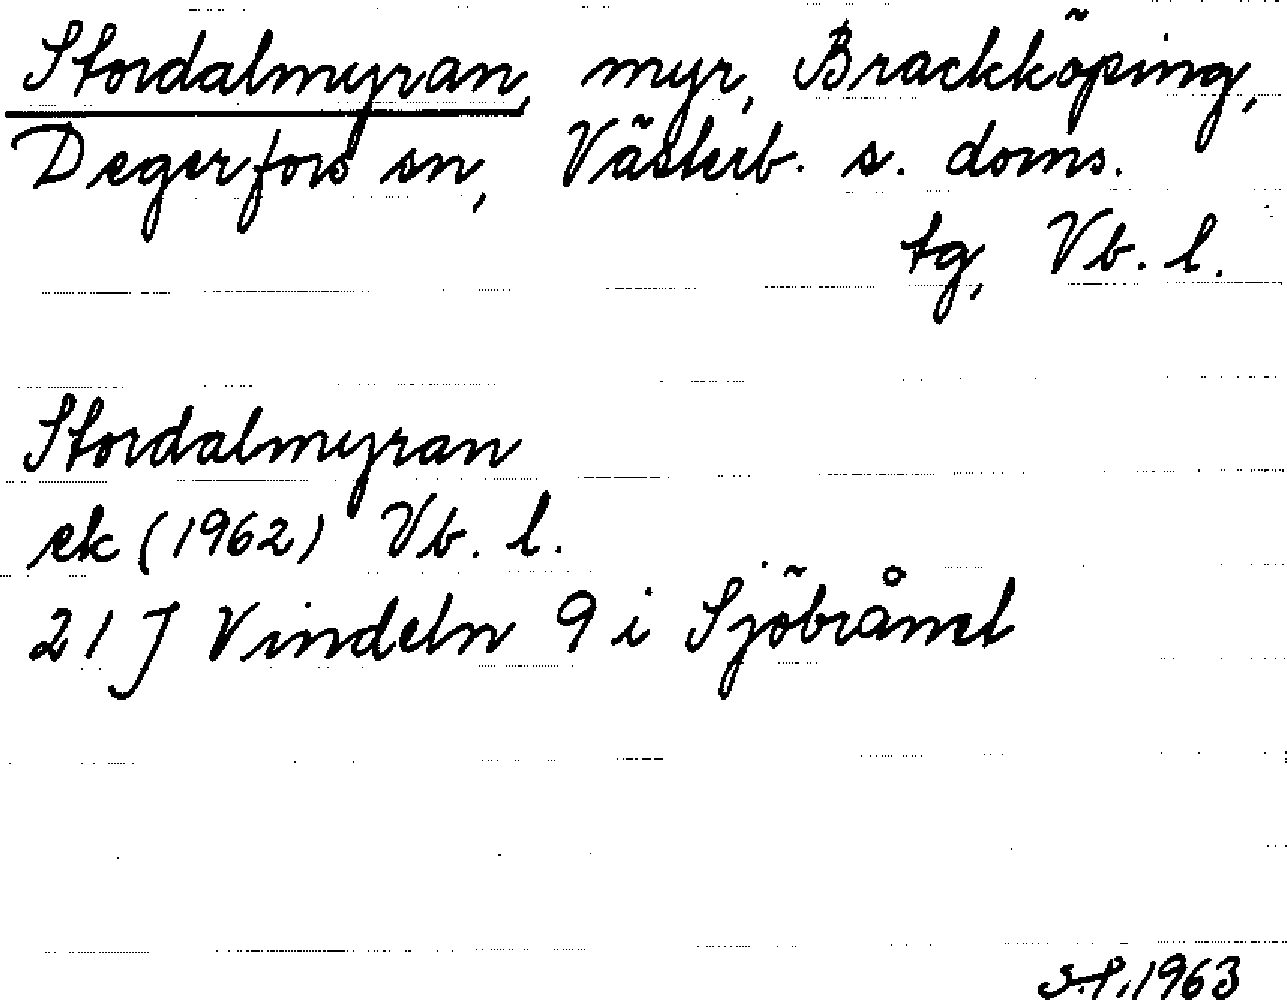 Stordalmyran, myr, Brackköping,
Degerfors sn, Västerb. s. doms.
tg, Vb. l.
Stordalmyran
ek (1962) Vb. l.
21 J Vindeln 9 i Sjöbrånet
1963